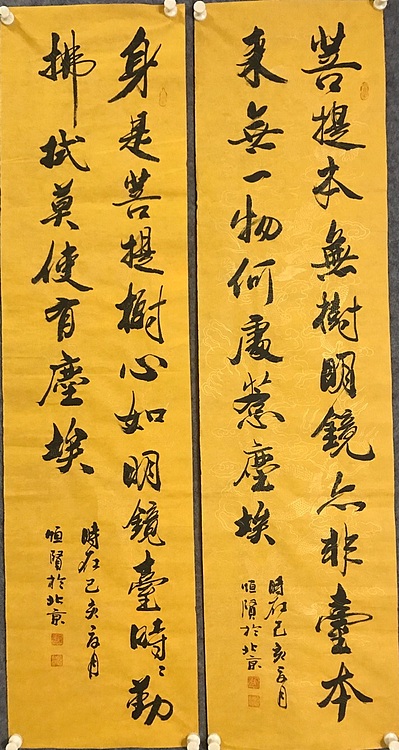 菩提本無樹明鏡亦非臺本
來無一物何處惹塵埃
時在己亥月
恒賢於北京
身是菩提樹心如明鏡臺時〻勤
拂拭莫使有塵埃
時在己亥月
恒賢於北京